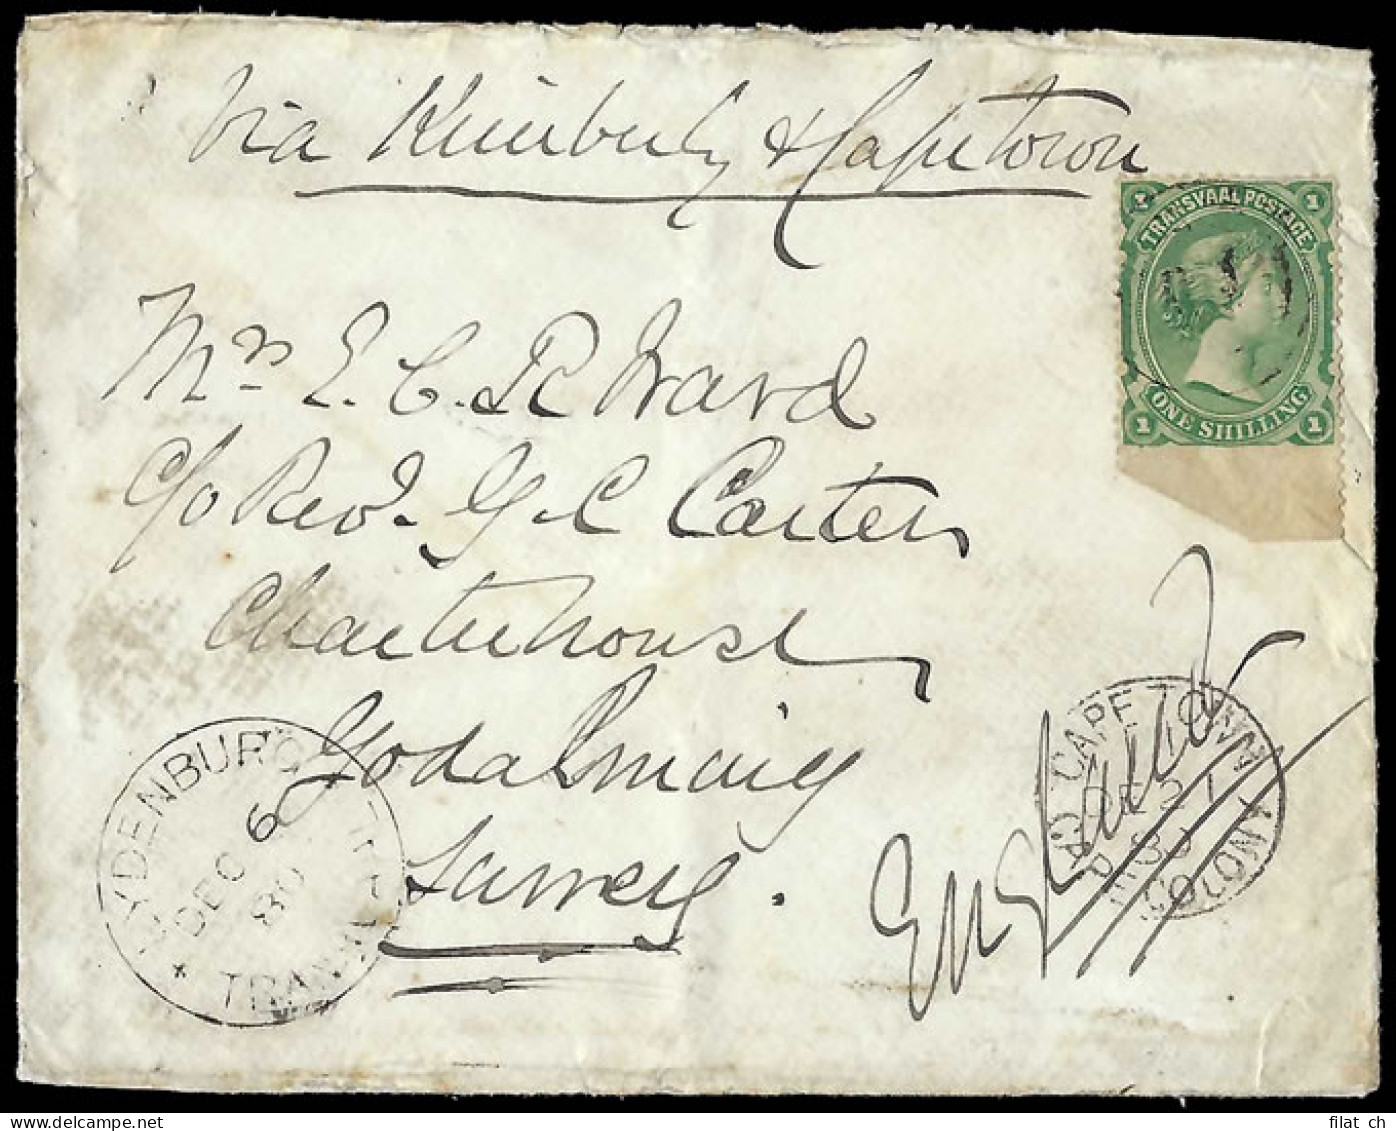 Via Kimberly & Capetown
1 TRANSVAAL POSTAGE 1
1 ONE SHILLING 1
Mrs E. C. R Ward
c/o Rev. G C Carter
Charterhouse
Godalmaig
Surrey.
England
LYDENBURG
DEC 6
80
TRANSVAAL
CAPE TOWN
DE 27
80
COLONY
filat ch